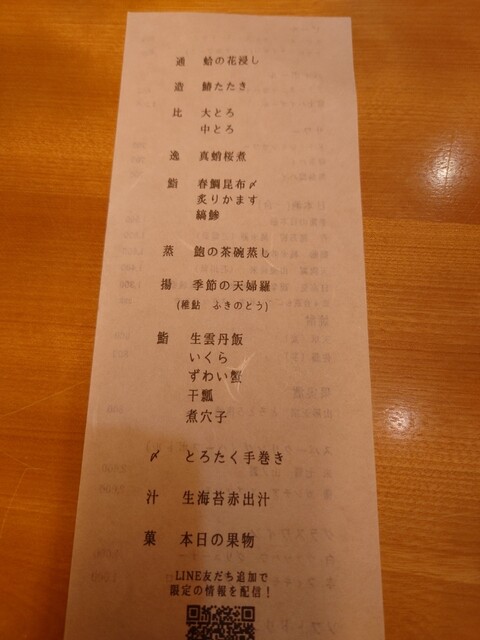 通 蛤の花浸し
造 鰆たたき
比 大とろ
中とろ
逸 真蛸桜煮
鮨 春鯛昆布〆
炙りかます
縞鯵
蒸 鮑の茶碗蒸し
揚 季節の天婦羅
(稚鮎 ふきのとう)
鮨 生雲丹飯
いくら
ずわい蟹
干瓢
煮穴子
〆 とろたく手巻き
汁 生海苔赤出汁
菓 本日の果物
LINE友だち追加で
限定の情報を配信!